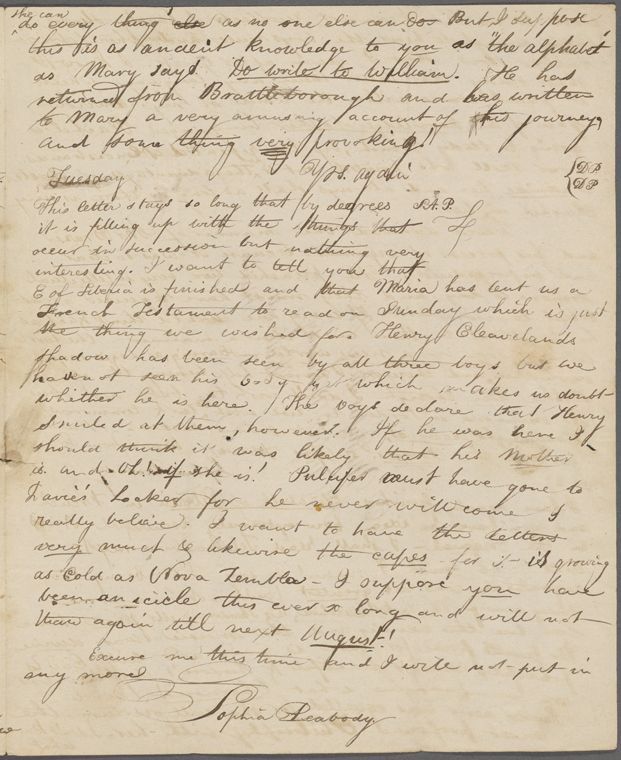 she can
do every thing else as no one else can do But I suppose
this is as ancient knowledge to you as "the alphabet"
as Mary says. Do write to William. He has
returned from Brattleborough and has written
to Mary a very amusing account of his journey
and some thing very provoking!
Tuesday Yrs. again
This letter stays so long that by degrees
it is filling up with the things that
occur in succession but nothing very
interesting. I want to tell you that
E of Siberia is finished and that Maria has lent us a
French Testament to read on Sunday which is just
the thing we wished for. Henry Cleavelands
shadow has been seen by all three boys but we
have not seen his body yet which makes us doubt
whether he is here. The boys declare that Henry
smiled at them, however. If he was here I
should think it was likely that his Mother
is and Oh! if she is! Pulsifer must have gone to
Davie's Locker for he never will come I
really believe. I want to have the letters
very much & likewise the capes for it is growing
as cold as Nova Zembla - I suppose you have
been an icicle this ever so long and will not
thaw again till next August!
Excuse me this time and I will not put in
any more
Sophia Peabody